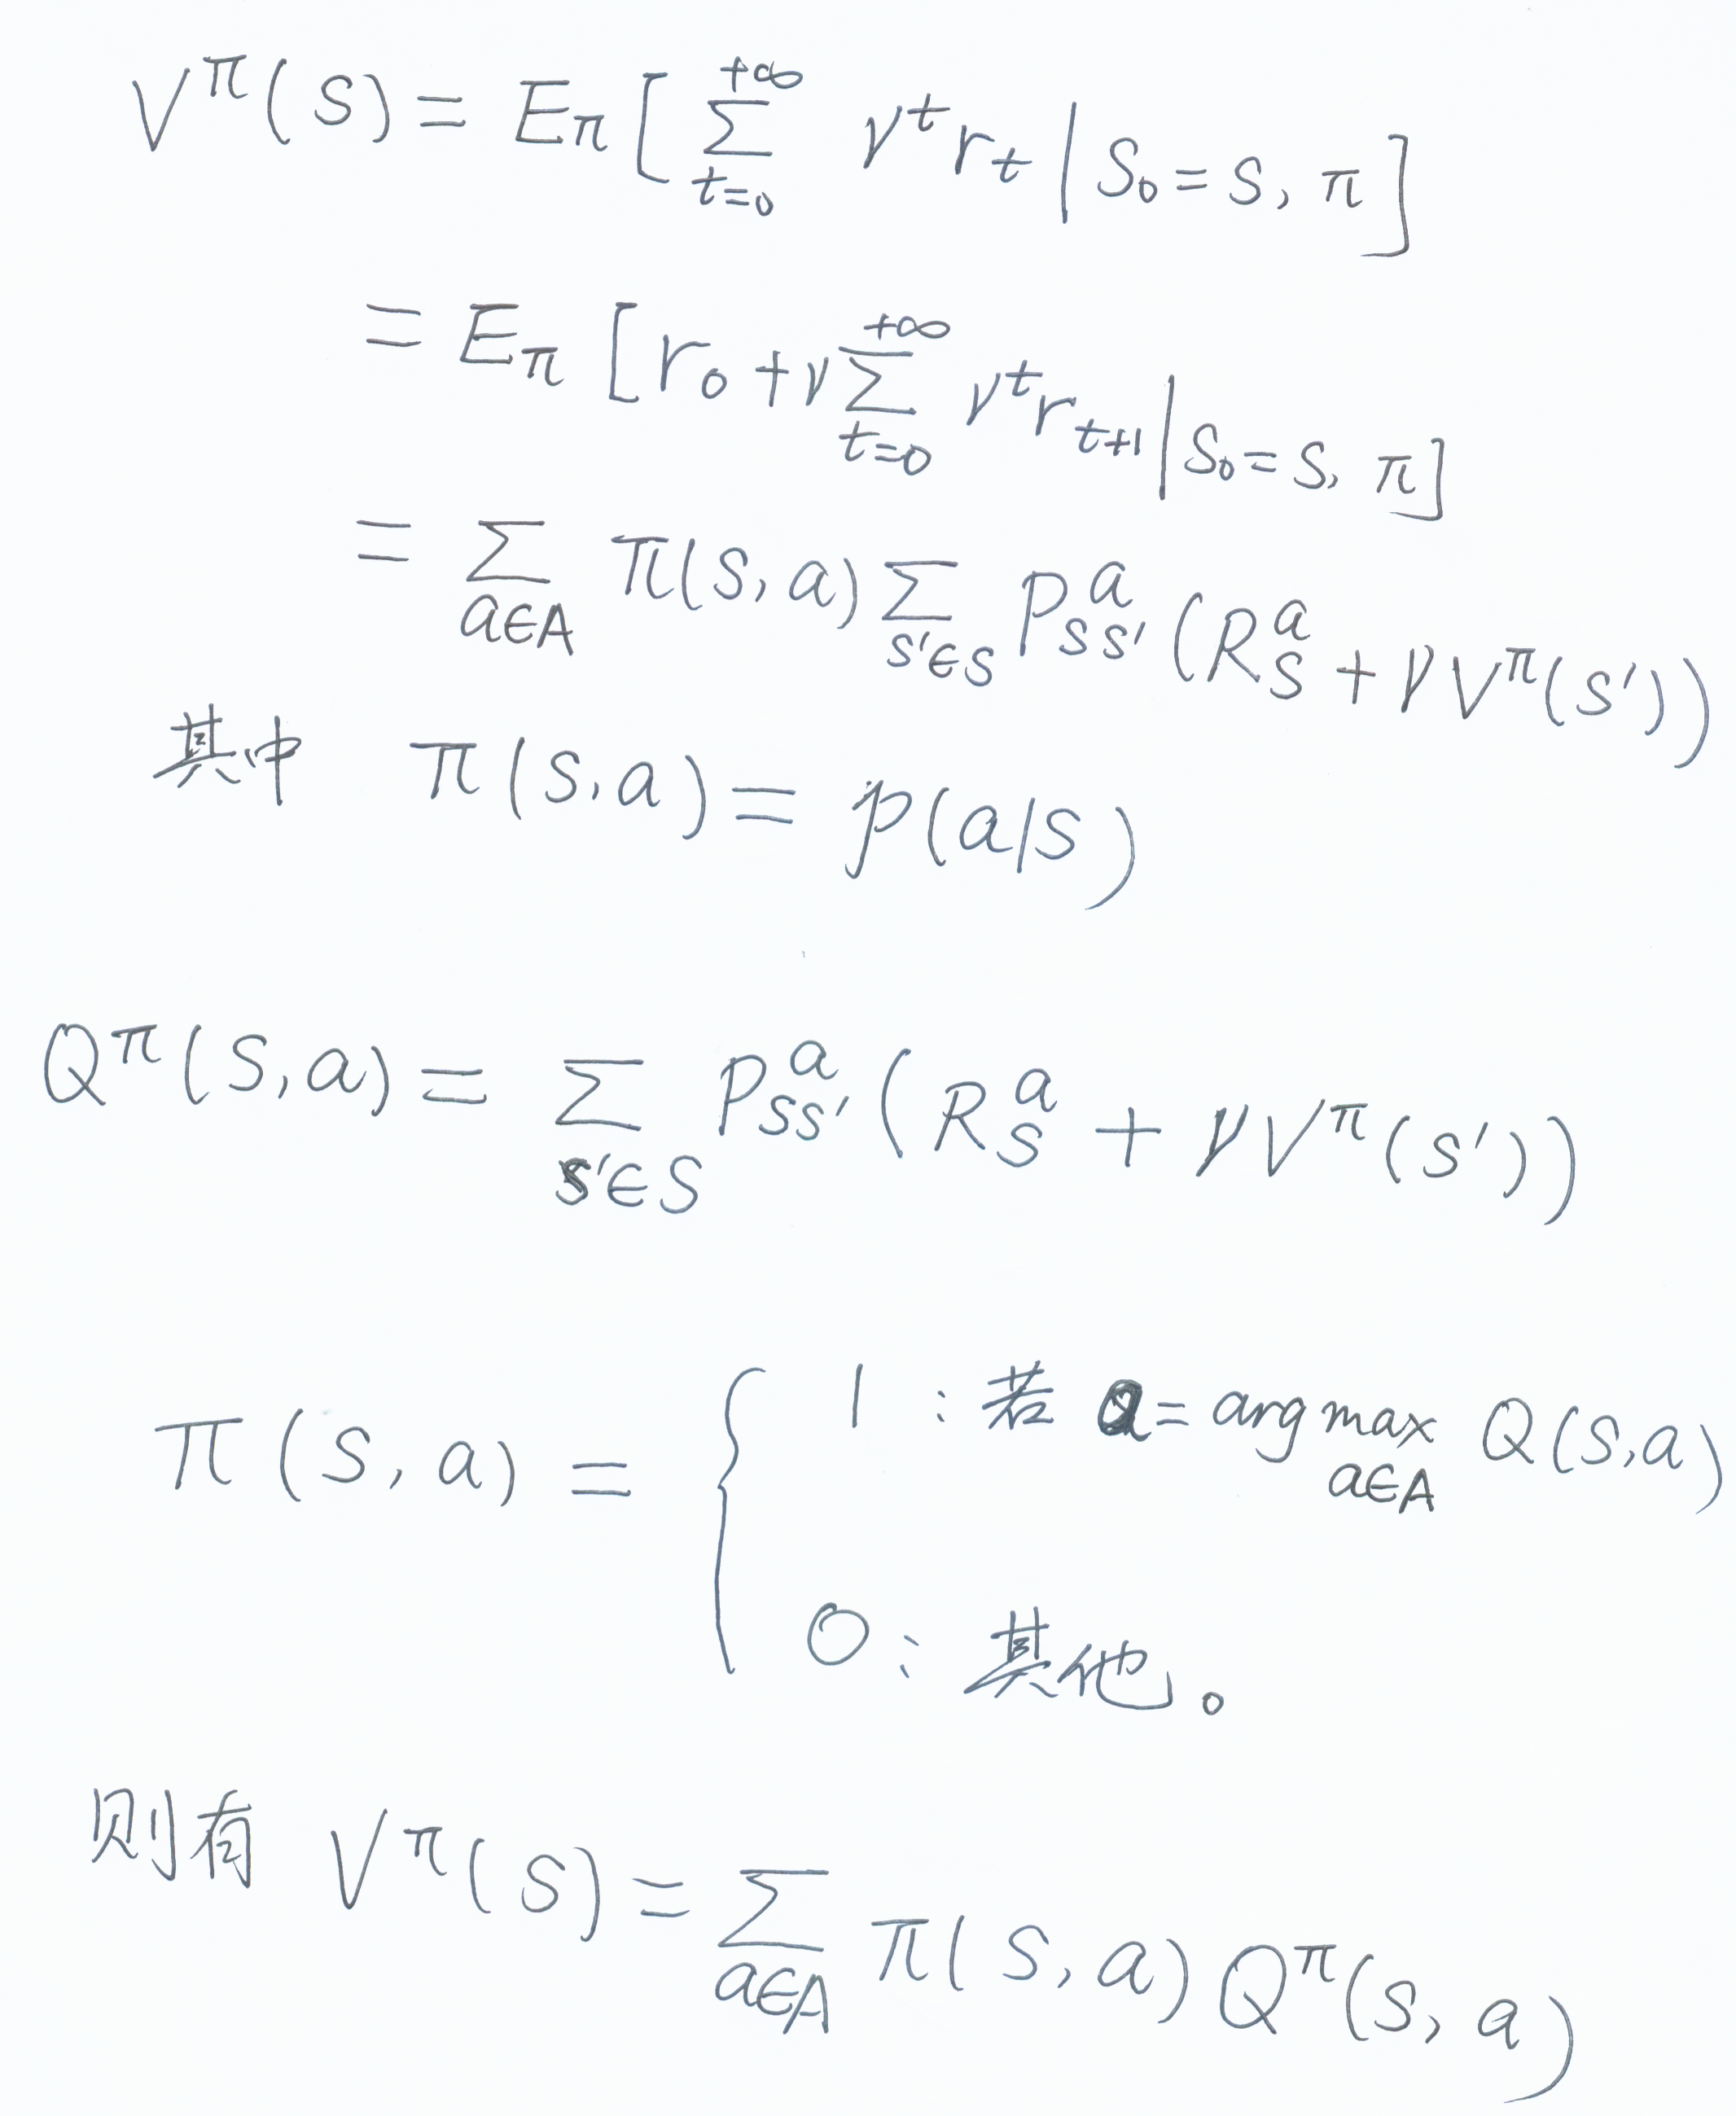 V^π(s) = E_π[∑_{t=0}^{+∞} γ^t r_t | S_0=s, π]
= E_π[r_0 + γ∑_{t=0}^{+∞} γ^t r_{t+1} | S_0=s, π]
= ∑_{a∈A} π(s,a) ∑_{s'∈S} P_{ss'}^a (R_s^a + γV^π(s'))
其中 π(s,a) = p(a|s)
Q^π(s,a) = ∑_{s'∈S} P_{ss'}^a (R_s^a + γV^π(s'))
π(s,a) = { 1 : 若 a = arg max_{a∈A} Q(s,a)
0 : 其他。
则有 V^π(s) = ∑_{a∈A} π(s,a) Q^π(s,a)